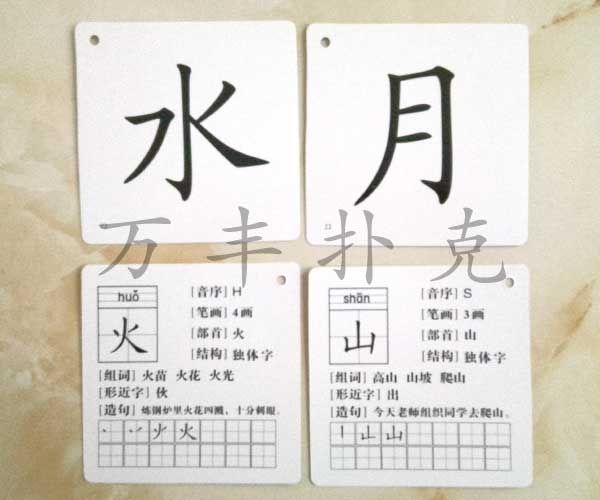 水
月
22
万丰扑克
huǒ
火
[音序] H
[笔画] 4画
[部首] 火
[结构] 独体字
[组词] 火苗 火花 火光
[形近字] 伙
[造句] 炼钢炉里火花四溅，十分刺眼。
丶 丷 火 火
shān
山
[音序] S
[笔画] 3画
[部首] 山
[结构] 独体字
[组词] 高山 山坡 爬山
[形近字] 出
[造句] 今天老师组织同学去爬山。
丨 山 山